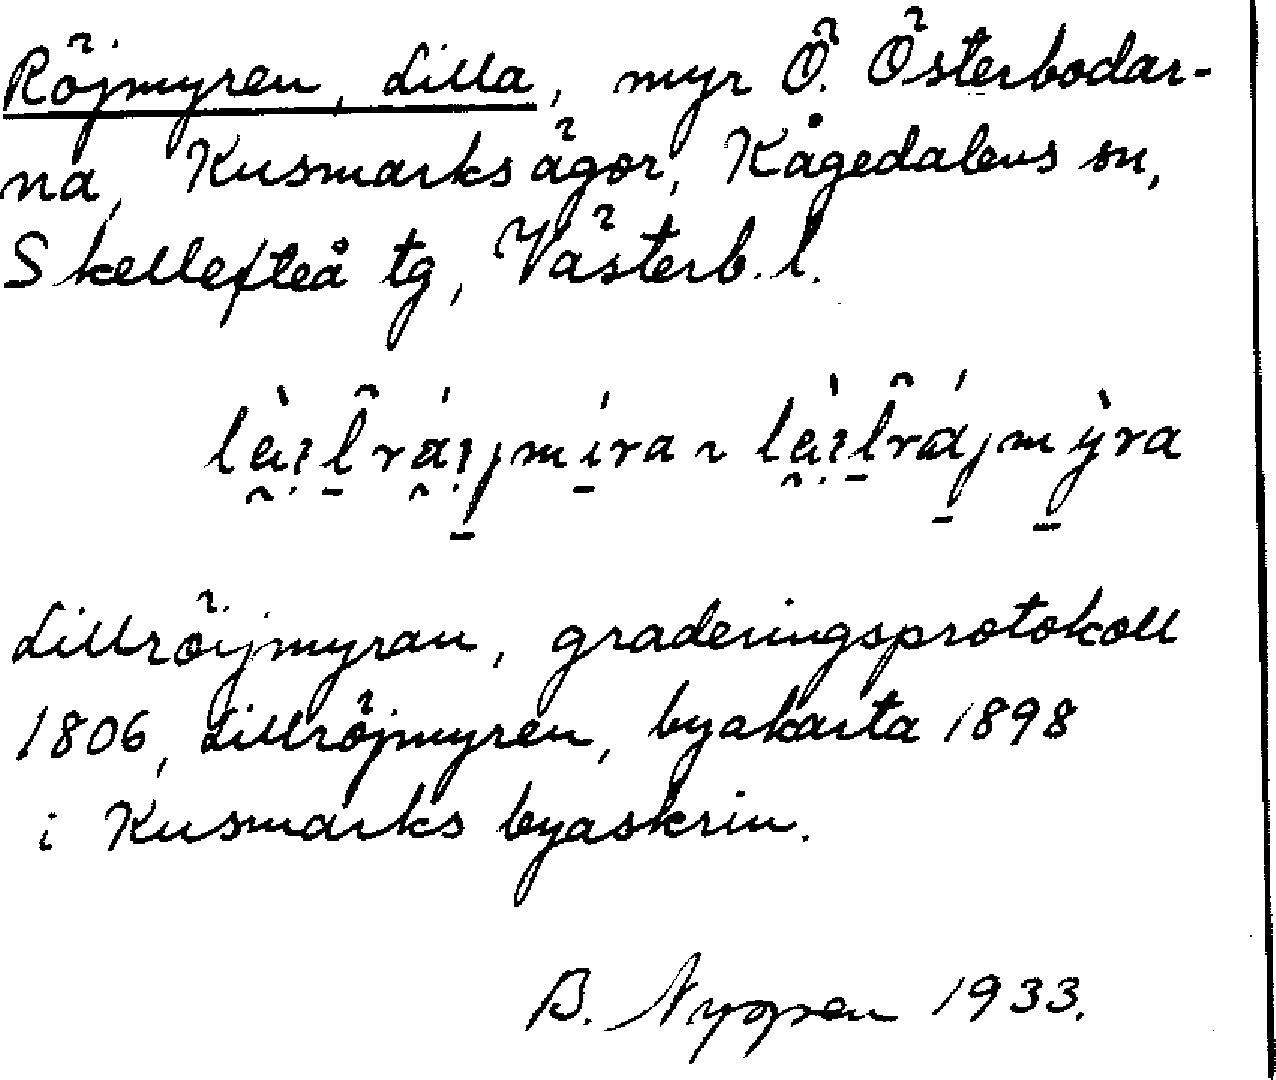 Röjmyren, Lilla, myr Ö. Österbodar-
na, Kusmarks ägor, Kågedalens sn,
Skellefteå tg, Västerb. l.
Lillröijmyran, graderingsprotokoll
1806, Lillröjmyren, byakarta 1898
i Kusmarks byaskrin.
B. Nygren 1933.